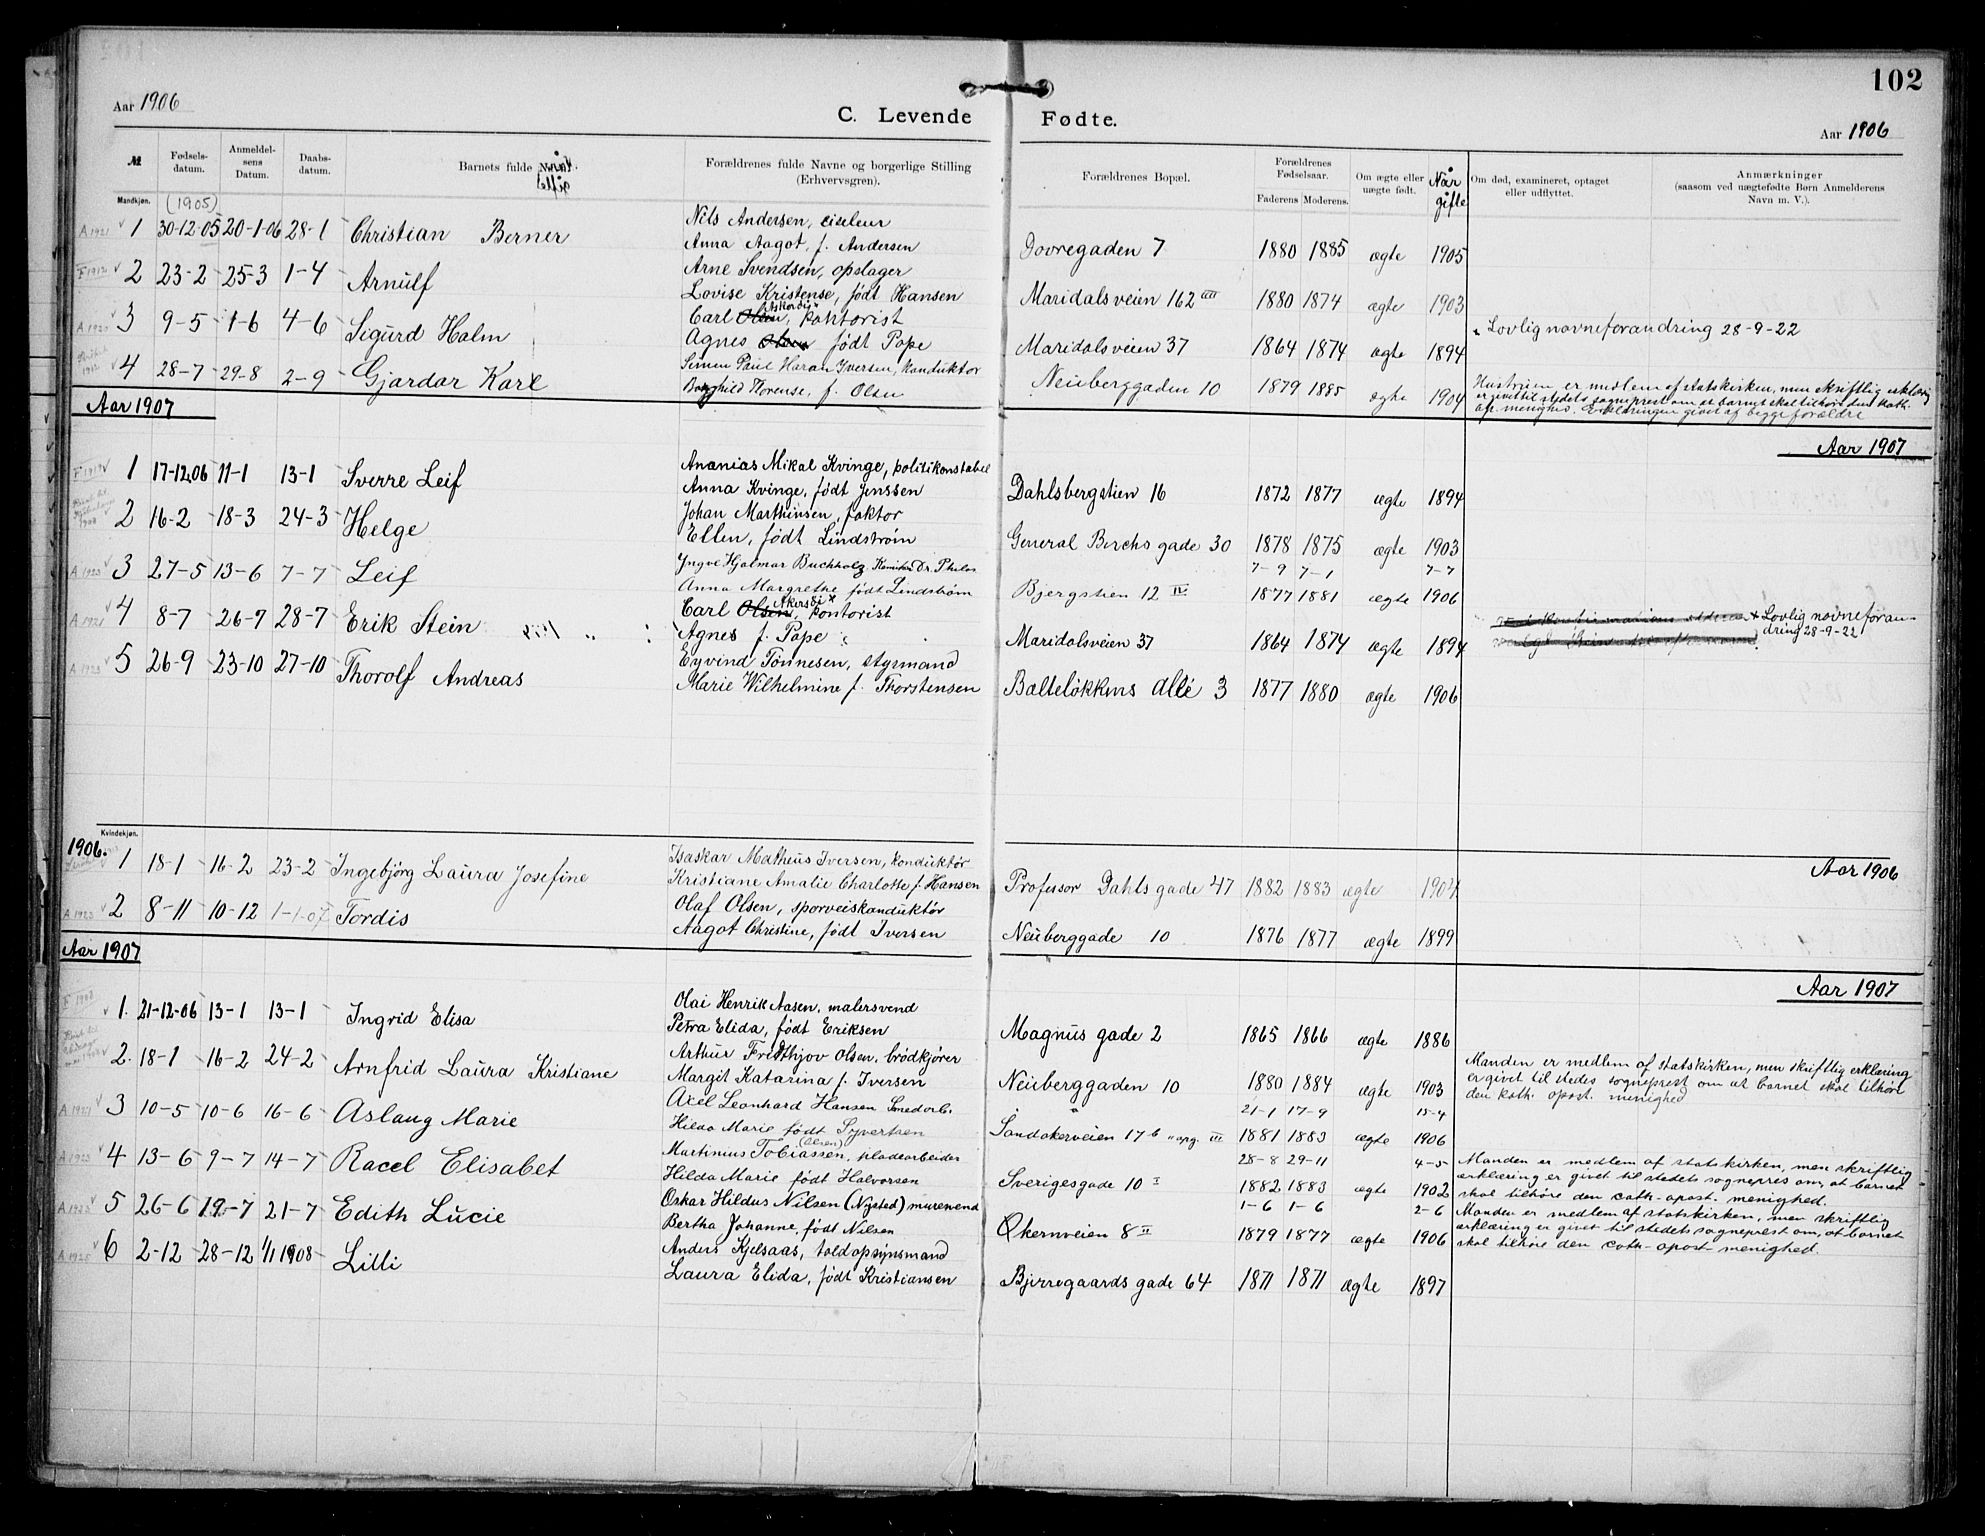 102
Aar 1906
C. Levende Fødte.
Aar 1906
№
Fødsels-datum.
Anmeldel-sens Datum.
Daabs-datum.
Barnets fulde Navn.
Forældrenes fulde Navne og borgerlige Stilling (Erhvervsgren).
Forældrenes Bopæl.
Forældrenes Fødselsaar.
Faderens Moderens.
Om ægte eller uægte født.
Når gifte
Om død, examineret, optaget eller udflyttet.
Anmærkninger (saasom ved uægtefødte Børn Anmelderens Navn m. V.).
Mandkjøn.
(1905)
A 1921 1 30-12-05 20-1-06 28-1 Christian Berner Nils Andersen, ciseleur
Anna Aagot, f. Andersen Dovregaden 7 1880 1885 ægte 1905
F 1912 2 23-2 25-3 1-4 Arnulf Arne Svendsen, opslager
Lovise Kristense, født Hansen Maridalsveien 162 IIII 1880 1874 ægte 1903
A 1920 3 9-5 1-6 4-6 Sigurd Holm Carl Olsen, kontorist
Agnes Olsen født Pape Maridalsveien 37 1864 1874 ægte 1894 x Lovlig navneforandring 28-9-22
4 28-7 29-8 2-9 Gjardar Karl Simen Paul Haran Iversen, konduktør
Borghild Horense, f. Olsen Neuberggaden 10 1879 1885 ægte 1904 Hustruen er medlem af statskirken, men skriftlig erklæring
er givet til stedets sogneprest om at barnet skal tilhøre den kath.
ap. menighed. Erklæringen givet af begge forældre
Aar 1907
Aar 1907
F 1919 1 17-12.06 11-1 13-1 Sverre Leif Ananias Mikal Kvinge, politikonstabel
Anna Kvinge, født Jenssen Dahlsbergstien 16 1872 1877 ægte 1894
2 16-2 18-3 24-3 Helge Johan Marthinsen, faktor
Ellen, født Lindstrøm General Birchs gade 30 1878 1875 ægte 1903
A 1923 3 27-5 13-6 7-7 Leif Yngve Hjalmar Buchholz Kemiker Dr. Philos
7-9 7-1 7-7
Anna Margrethe født Lindstrøm Bjergstien 12 IV 1877 1881 ægte 1906
A 1921 4 8-7 26-7 28-7 Erik Stein Carl Olsen, Akersdix kontorist
Agnes f. Pape Maridalsveien 37 1864 1874 ægte 1894 x Lovlig navneforan-
dring 28-9-22
A 1923 5 26-9 23-10 27-10 Thorolf Andreas Eyvind Tønnesen, styrmand
Marie Wilhelmine f. Thorstensen Balteløkkens Allé 3 1877 1880 ægte 1906
Kvindekjøn.
1906.
Aar 1906
1 18-1 16-2 23-2 Ingebjørg Laura Josefine Isaskar Matheus Iversen, konduktør
Kristiane Amalie Charlotte f. Hansen Professor Dahls gade 47 1882 1883 ægte 1904
A 1923 2 8-11 10-12 1-1-07 Tordis Olaf Olsen, sporveiskonduktør
Aagot Christine, født Iversen Neuberggade 10 1876 1877 ægte 1899
Aar 1907
Aar 1907
1. 21-12-06 13-1 13-1 Ingrid Elisa Olai Henrik Aasen, malersvend
Petra Elida, født Eriksen Magnus gade 2 1865 1866 ægte 1886
2. 18-1 16-2 24-2 Arnfrid Laura Kristiane Arthur Fridthjov Olsen, brødkjører
Margit Katarina f. Iversen Neuberggaden 10 1880 1884 ægte 1903 Manden er medlem af statskirken, men skriftlig erklæring
er givet til stedes sogneprest om at barnet skal tilhøre
den kath. apost. menighed
3 10-5 10-6 16-6 Aslaug Marie Axel Leonhard Hansen Smedarb.
21-1 17-9 15-4
Hilda Marie født Syvertsen Sandakerveien 17 b opg. III 1881 1883 ægte 1906
A 1923 4 13-6 9-7 14-7 Racel Elisabet Martinius Tobiassen (Olsen), pladearbeider
28-8 29-11 4-5
Hilda Marie født Halvorsen Sverigesgade 10 I 1882 1883 ægte 1902 Manden er medlem af statskirken, men skriftlig
erklæring er givet til stedets sognepres om, at barnet
skal tilhøre den cath-apost. menighed.
5 26-6 19-7 21-7 Edith Lucie Oskar Hildus Nilsen (Nysted) mursvend
1-6 1-6 2-6
Bertha Johanne, født Nilsen Økernveien 8 II 1879 1877 ægte 1906 Manden er medlem af statskirken, men skriftlig
erklæring er givet til stedets sogneprest om, at barnet
skal tilhøre den cath-apost-menighed.
6 2-12 28-12 1/1 1908 Lilli Anders Kjelsaas, toldopsynsmand
Laura Elida, født Kristiansen Bjerregaards gade 64 1871 1871 ægte 1897